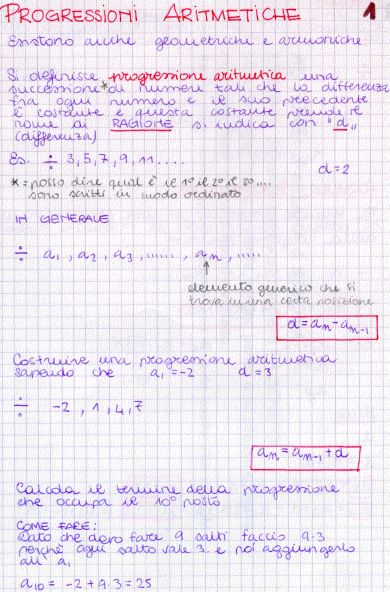 PROGRESSIONI ARITMETICHE 1
Esistono anche geometriche e armoniche
Si definisce progressione aritmetica una
successione* di numeri tali che la differenza
fra ogni numero e il suo precedente
è costante e questa costante prende il
nome di RAGIONE si indica con "d"
(differenza)
Es. ÷ 3, 5, 7, 9, 11 ....
d=2
* = posso dire qual è il 1º il 2º il 20 ....
sono scritti in modo ordinato
IN GENERALE
÷ a₁, a₂, a₃, ......, aₙ, .....
elemento generico che si
trova in una certa posizione
d = aₙ - aₙ₋₁
Costruire una progressione aritmetica
sapendo che a₁ = -2 d = 3
÷ -2, 1, 4, 7
aₙ = aₙ₋₁ + d
Calcola il termine della progressione
che occupa il 10º posto
COME FARE:
Dato che devo fare 9 salti faccio 9·3
perché ogni salto vale 3 e poi aggiungerlo
all' a₁
a₁₀ = -2 + 9·3 = 25